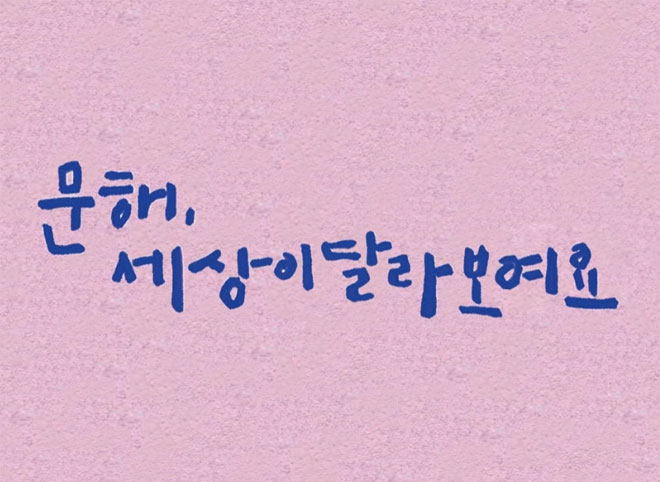 문해,
세상이 달라보여요